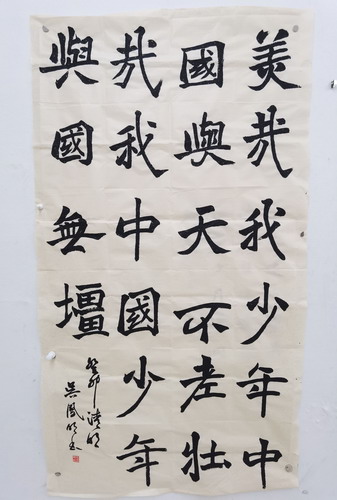 美哉我少年中
國與天不老壯
哉我中國少年
與國無壃
癸卯清明
吴凤明书